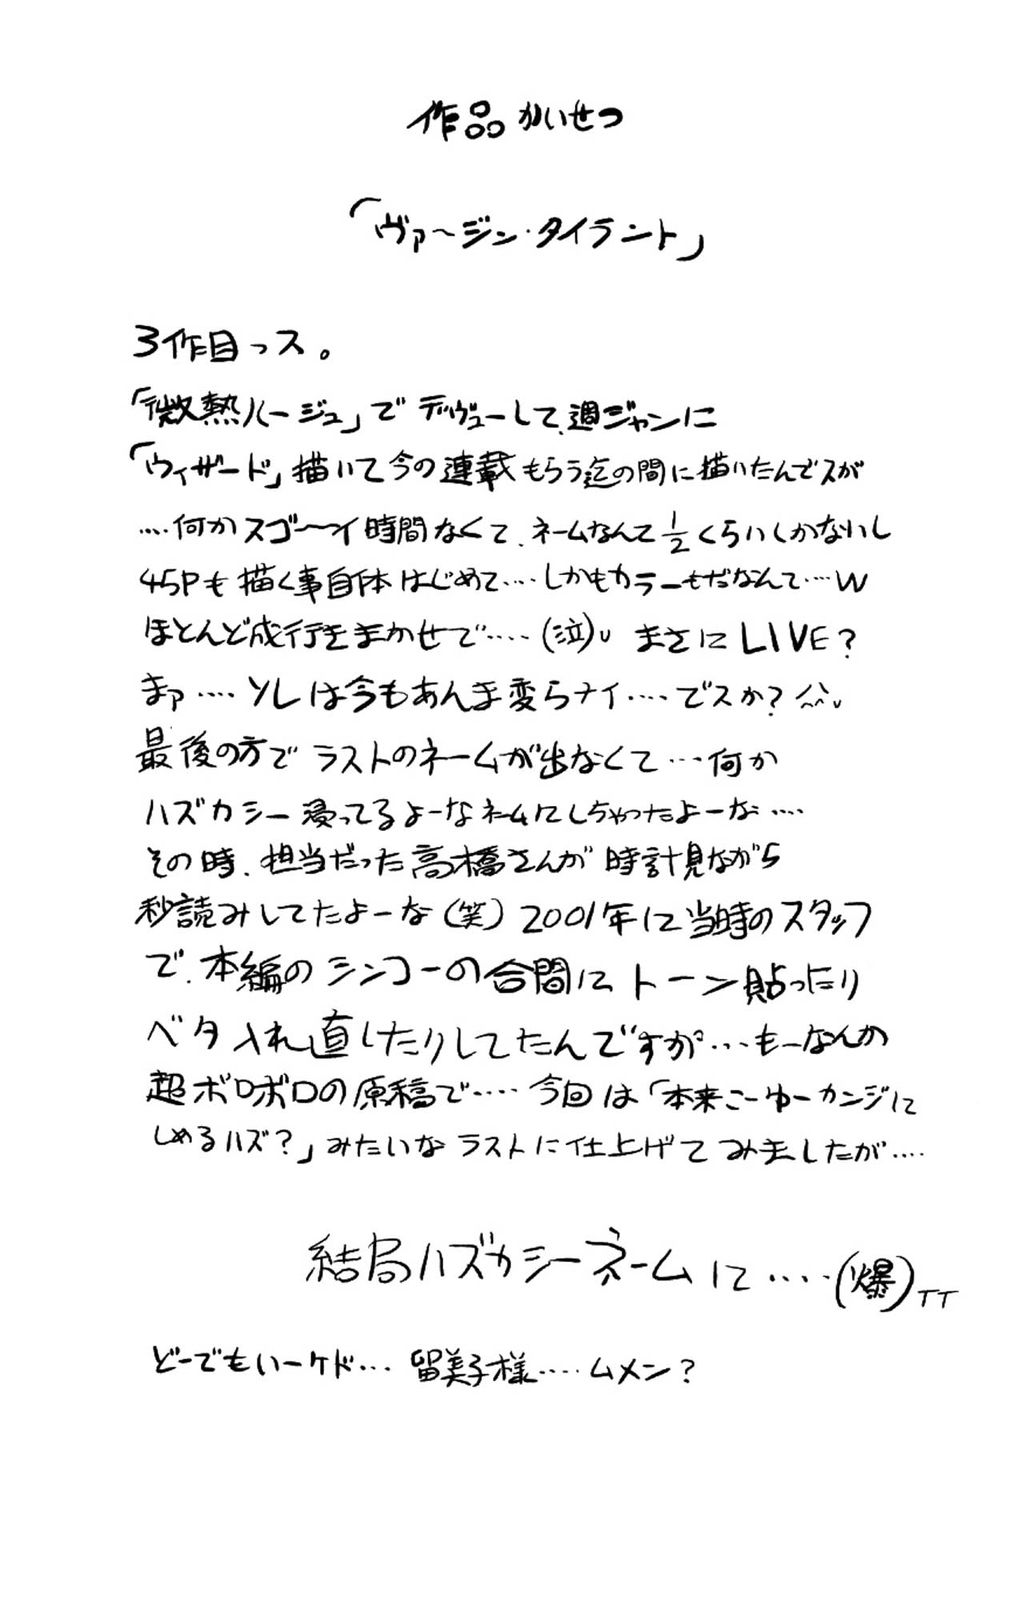 作品かいせつ
「ヴァ〜ジン・タイラント」
3作目っス。
「微熱ルージュ」でデヴューして、週ジャンに
「ウィザード」描いて今の連載もらう迄の間に描いたんでスが
‥‥何かスゴ〜イ時間なくて、ネームなんて1/2くらいしかないし
45Pも描く事自体はじめて‥‥しかもカラーもだなんて‥‥w
ほとんど成行きまかせで‥‥(泣)υ まさにLIVE?
まァ‥‥ソレは今もあんま変らナイ‥‥でスか?^^;
最後の方でラストのネームが出なくて…何か
ハズカシー浸ってるよーなネームにしちゃったよーな‥‥
その時、担当だった高橋さんが時計見ながら
秒読みしてたよーな(笑)2001年に当時のスタッフ
で、本編のシンコーの合間にトーン貼ったり
ベタ入れ直したりしてたんですが…もーなんか
超ボロボロの原稿で‥‥今回は「本来こーゆーカンジに
しめるハズ?」みたいなラストに仕上げてみましたが‥‥
結局ハズカシーネームに‥‥(爆)TT
どーでもいーケド…留美子様‥‥ムメン?